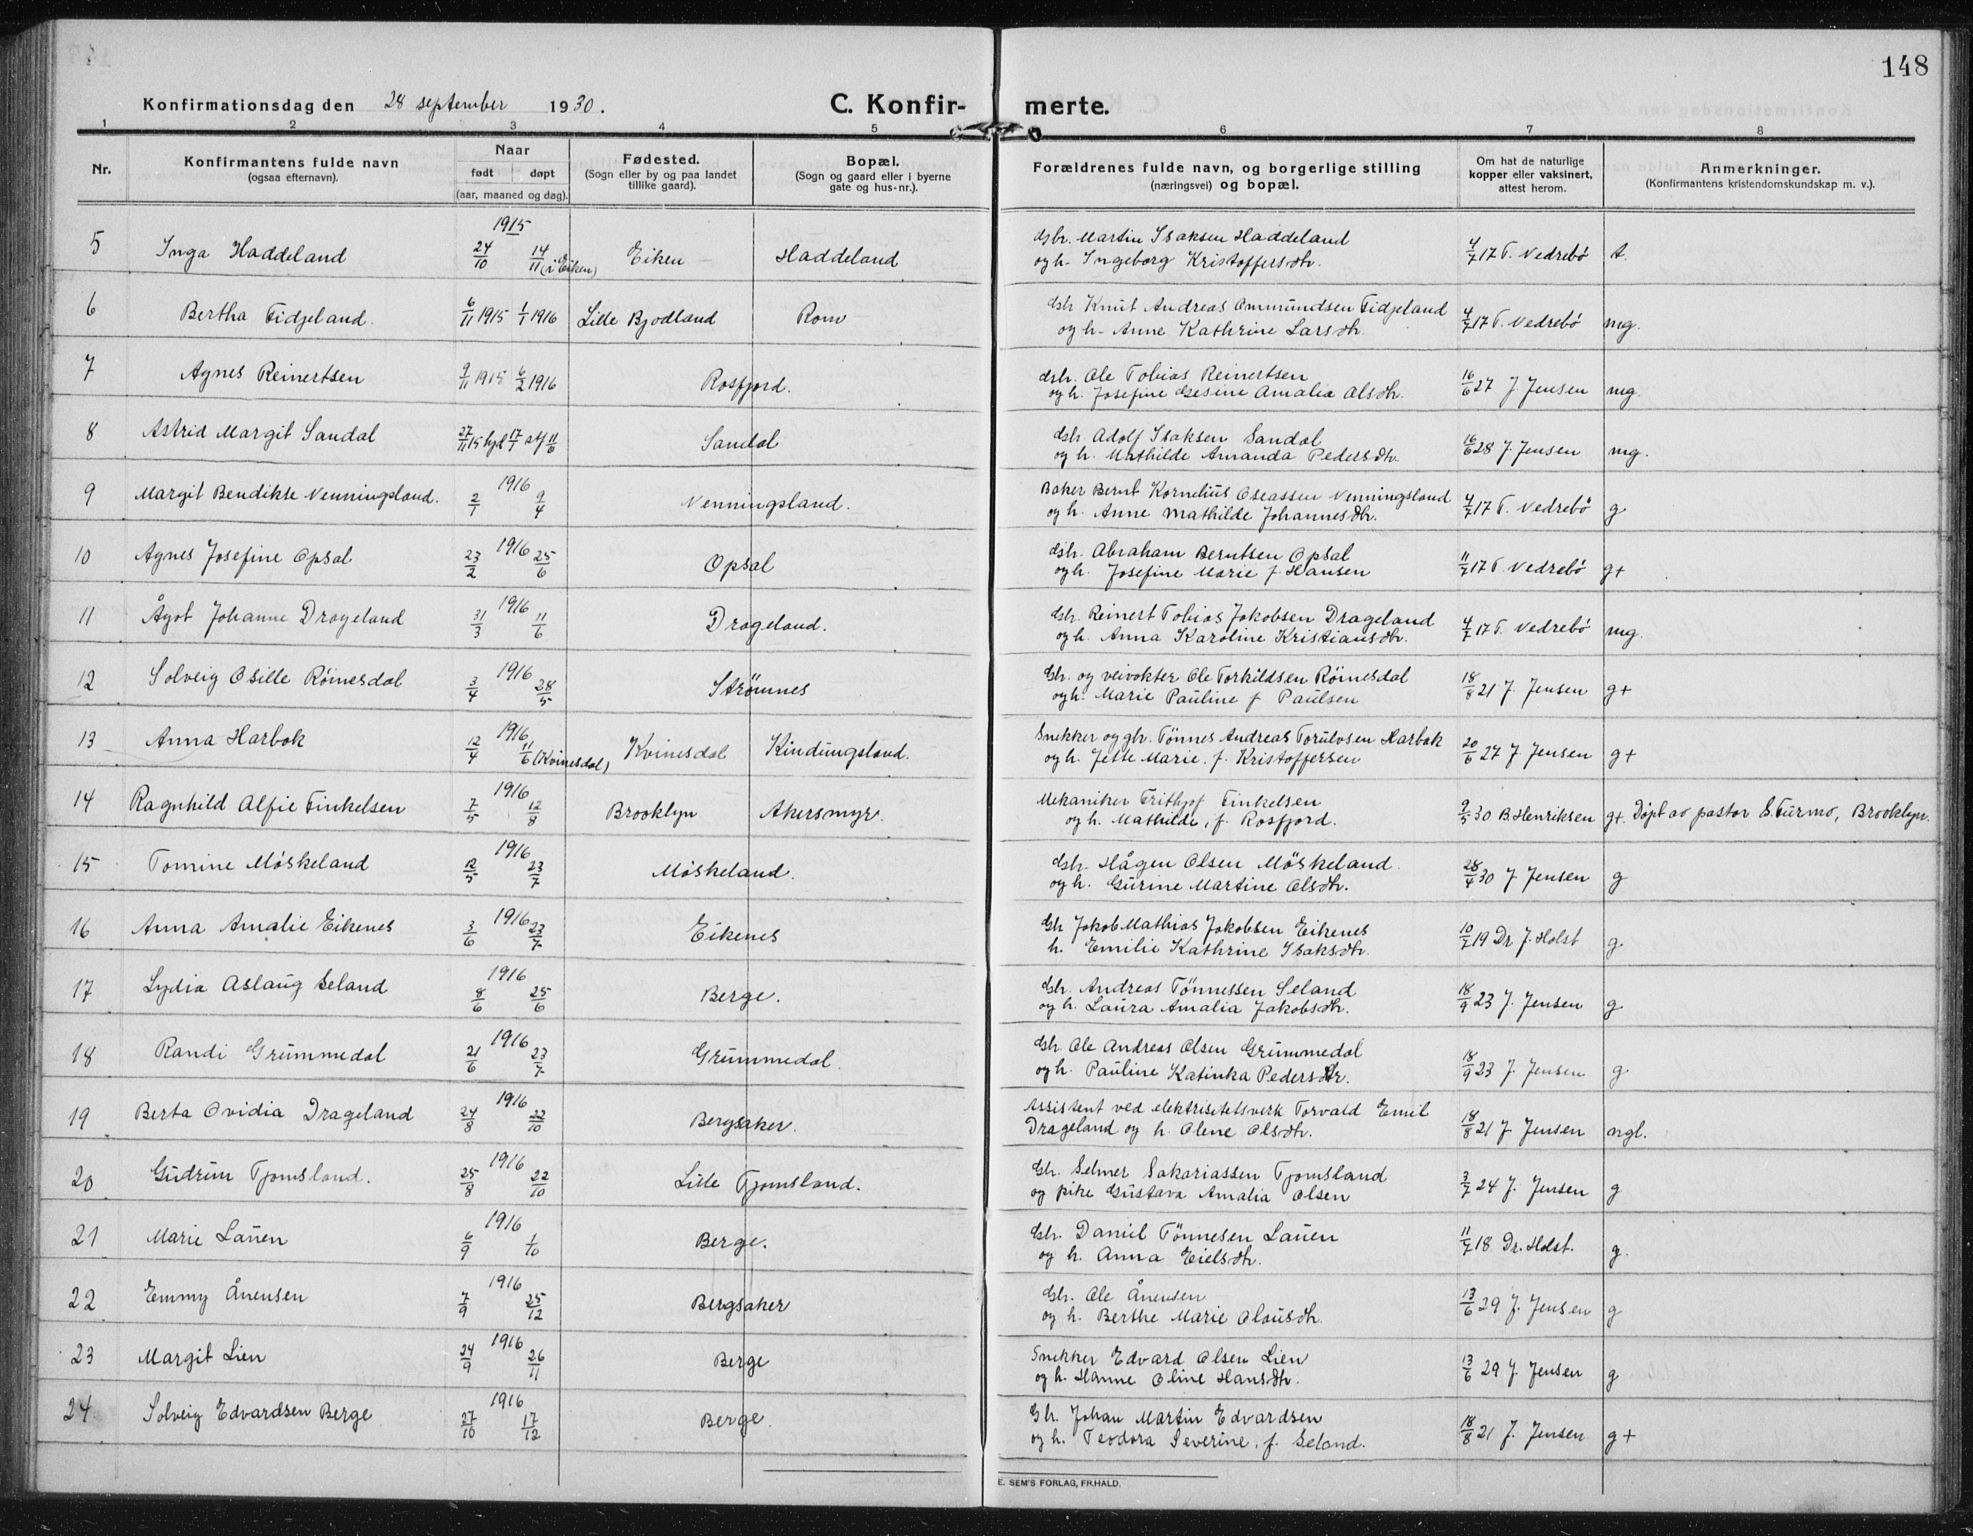 148
Konfirmationsdag den 28 september 1930. C. Konfirmerte.
1 2 3 4 5 6 7 8
Nr. Konfirmantens fulde navn (ogsaa efternavn). Naar født døpt (aar, maaned og dag). Fødested. (Sogn eller by og paa landet tillike gaard). Bopæl. (Sogn og gaard eller i byerne gate og hus-nr.). Forældrenes fulde navn, og borgerlige stilling (næringsvei) og bopæl. Om hat de naturlige kopper eller vaksinert, attest herom. Anmerkninger. (Konfirmantens kristendomskundskap m. v.).
5 Inga Haddeland 1915 24/10 14/11 (i Eiken) Eiken Haddeland
gbr. Martin Isaksen Haddeland
og h. Ingeborg Kristoffersdtr. 4/7 17 T. Vedrebø t.
6 Bertha Fidjeland. 6/11 1915 1/1 1916 Lille Bjodland Rom
gbr Knut Andreas Ommundsen Fidjeland
og h. Anne Kathrine Larsdtr. 4/7 17 T. Vedrebø mg.
7 Agnes Reinertsen 9/11 1915 6/2 1916 Rosfjord.
gbr. Ole Tobias Reinertsen
og h. Josefine Gesine Amalia Olsdtr. 16/6 27 J. Jensen mg.
8 Astrid Margit Sandal 27/11 15 hjd 17/1 stf 11/6 Sandal
gbr Adolf Isaksen Sandal
og h. Mathilde Amanda Pedersdtr. 16/6 28 J. Jensen mg.
9 Margit Bendikte Venningsland. 1916 2/1 9/4 Venningsland.
Baker Bernt Kornelius Oseassen Venningsland
og h. Anne Mathilde Johannesdtr. 4/7 17 T. Vedrebø g
10 Agnes Josefine Opsal 1916 23/2 25/6 Opsal
gbr. Abraham Berntsen Opsal
og h. Josefine Marie f. Hansen 11/7 17 T. Vedrebø g+
11 Ågot Johanne Drageland 1916 31/3 11/6 Drageland.
Gbr. Reinert Tobias Jakobsen Drageland
og h. Anna Karoline Kristiansdtr. 4/7 17 T. Vedrebø mg.
12 Solveig Osille Röinesdal 1916 3/4 28/5 Strömnes
Gbr. og veivokter Ole Torkildsen Röinesdal
og h. Marie Pauline f Paulsen 18/8 21 J. Jensen g+
13 Anna Harbok 1916 12/4 11/6 (Kvinesdal) Kvinesdal Kindungsland.
Snekker og gbr. Tönnes Andreas Torulvsen Harbak
og h. Jette Marie, f. Kristoffersen 20/6 27 J Jensen g+
14 Ragnhild Alfie Finkelsen 1916 7/5 12/8 Brooklyn Akersmyr.
Mekaniker Frithjof Finkelsen
og h. Mathilde, f. Rosfjord. 9/5 30 B Henriksen g+. Döpt av pastor S. Turmo, Brooklyn.
15 Tomine Möskeland 1916 12/5 23/7 Möskeland.
Gbr. Hågen Olsen Möskeland.
og h. Gurine Martine Olsdtr. 28/4 30 J Jensen g
16 Anna Amalie Eikenes 1916 3/6 23/7 Eikenes
Gbr Jakob Mathias Jakobsen Eikenes
h. Emilie Kathrine Isaksdtr. 10/7 19 Dr J. Holst g.
17 Lydia Aslaug Seland 1916 8/6 25/6 Berge.
Gbr. Andreas Tönnessen Seland
og h. Laura Amalia Jakobsdtr. 18/9 23 J. Jensen g
18 Randi Grummedal 1916 21/6 23/7 Grummedal.
Gbr Ole Andreas Olsen Grummedal
og h. Pauline Katinka Pedersdtr. 18/9 23 J. Jensen g
19 Berta Ovidia Drageland 1916 24/8 22/10 Bergsaker.
Assistent ved elektrisitetsverk Torvald Emil
Drageland og h. Olene Olsdtr. 18/8 21 J Jensen ngl.
20 Gudrun Tjomsland. 1916 25/8 22/10 Lille Tjomsland.
Gbr. Selmer Sakariassen Tjomsland
og pike Gustava Amalia Olsen 3/7 24 J. Jensen g
21 Marie Lauen 1916 6/9 1/10 Berge.
Gbr. Daniel Tönnesen Lauen
og h. Anna Eielsdtr. 11/7 18 Dr. Holst. g.
22 Emmy Ånensen 1916 7/9 25/12 Bergsaker
Gbr. Ole Ånensen
og h. Berthe Marie Olausdtr. 13/6 29 J. Jensen g
23 Margit Lien 1916 24/9 26/11 Berge
Snekker Edvard Olsen Lien
og h. Hanne Oline Hansdtr. 13/6 29 J. Jensen g
24 Solveig Edvardsen Berge 1916 27/10 17/12 Berge.
Gbr. Johan Martin Edvardsen
og h. Teodora Severine, f. Seland. 18/8 21 J. Jensen g+
E. SEM'S FORLAG, FR.HALD.